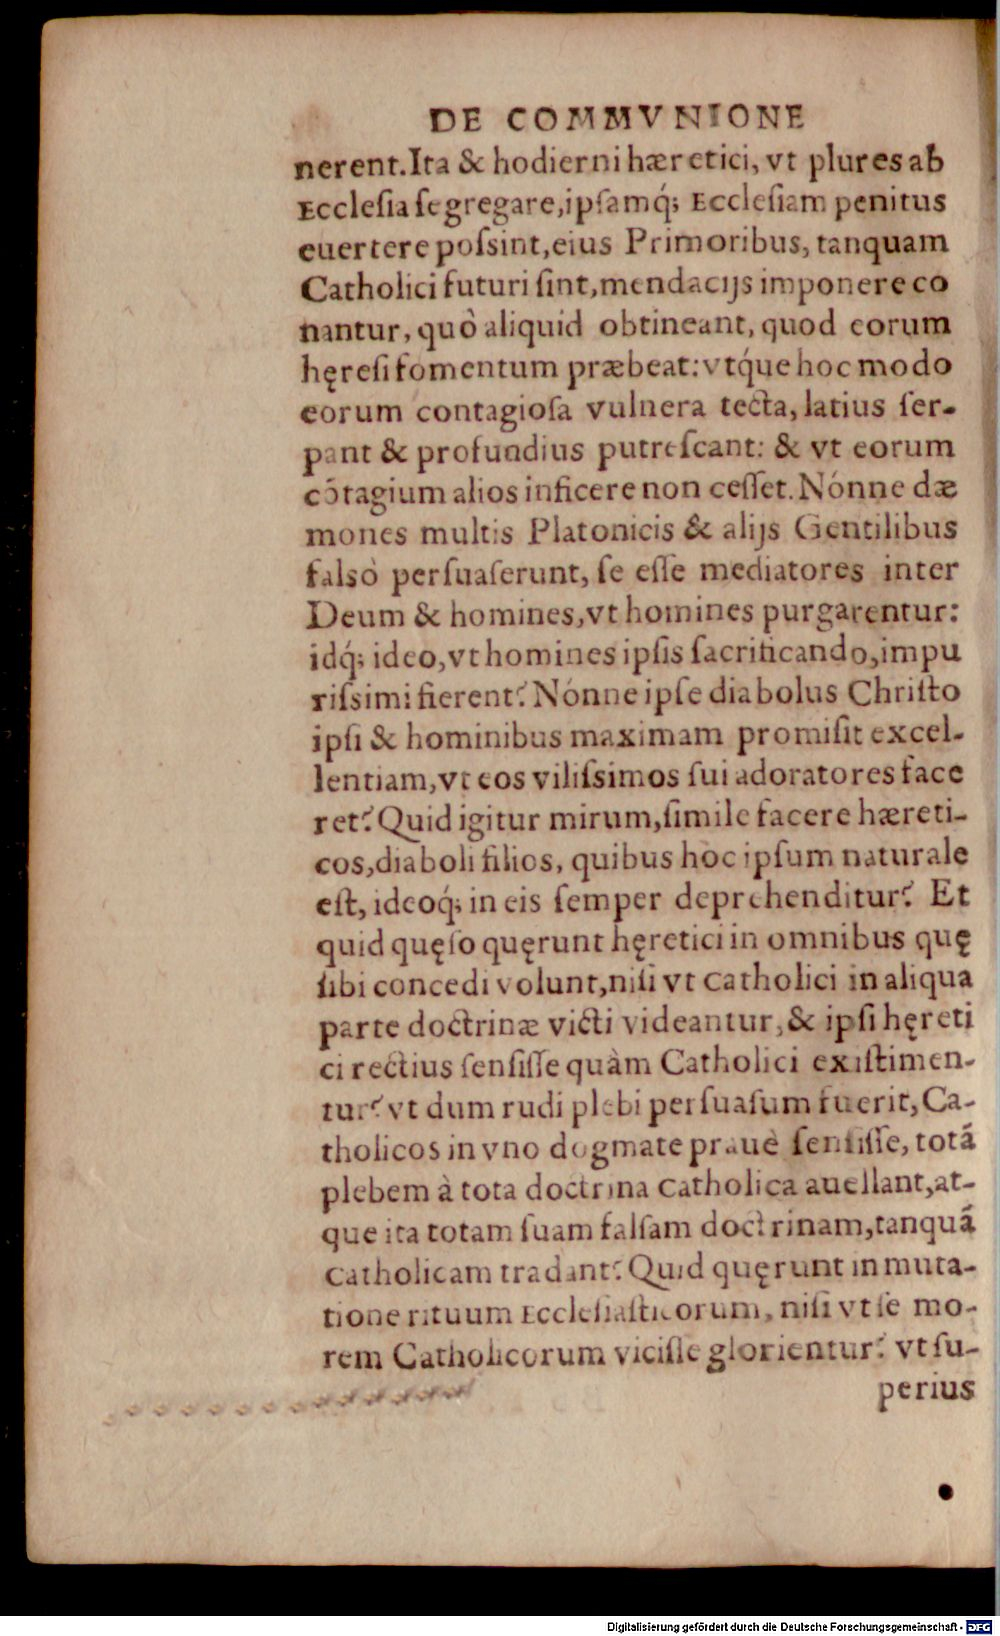 DE COMMVNIONE
nerent. Ita & hodierni hæretici, vt plures ab
Ecclesia segregare, ipsamq́; Ecclesiam penitus
euertere possint, eius Primoribus, tanquam
Catholici futuri sint, mendacijs imponere co
nantur, quò aliquid obtineant, quod eorum
hęresi fomentum præbeat: vtq́ue hoc modo
eorum contagiosa vulnera tecta, latius ser-
pant & profundius putrescant: & vt eorum
cōtagium alios inficere non cesset. Nónne dæ
mones multis Platonicis & alijs Gentilibus
falsò persuaserunt, se esse mediatores inter
Deum & homines, vt homines purgarentur:
idq́; ideo, vt homines ipsis sacrificando, impu
rissimi fierent? Nónne ipse diabolus Christo
ipsi & hominibus maximam promisit excel-
lentiam, vt eos vilissimos sui adoratores face
ret? Quid igitur mirum, simile facere hæreti-
cos, diaboli filios, quibus hoc ipsum naturale
est, ideoq́; in eis semper deprehenditur? Et
quid quęso quęrunt hęretici in omnibus quę
sibi concedi volunt, nisi vt Catholici in aliqua
parte doctrinæ victi videantur, & ipsi hęreti
ci rectius sensisse quàm Catholici existimen-
tur? vt dum rudi plebi persuasum fuerit, Ca-
tholicos in vno dogmate prauè sensisse, totā
plebem à tota doctrina Catholica auellant, at-
que ita totam suam falsam doctrinam, tanquā
Catholicam tradant? Quid quęrunt in muta-
tione rituum Ecclesiasticorum, nisi vt se mo-
rem Catholicorum vicisse glorientur? vt su-
perius
Digitalisierung gefördert durch die Deutsche Forschungsgemeinschaft - DFG